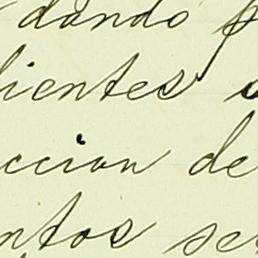 dando p
lientes s
ccion de
ntos se